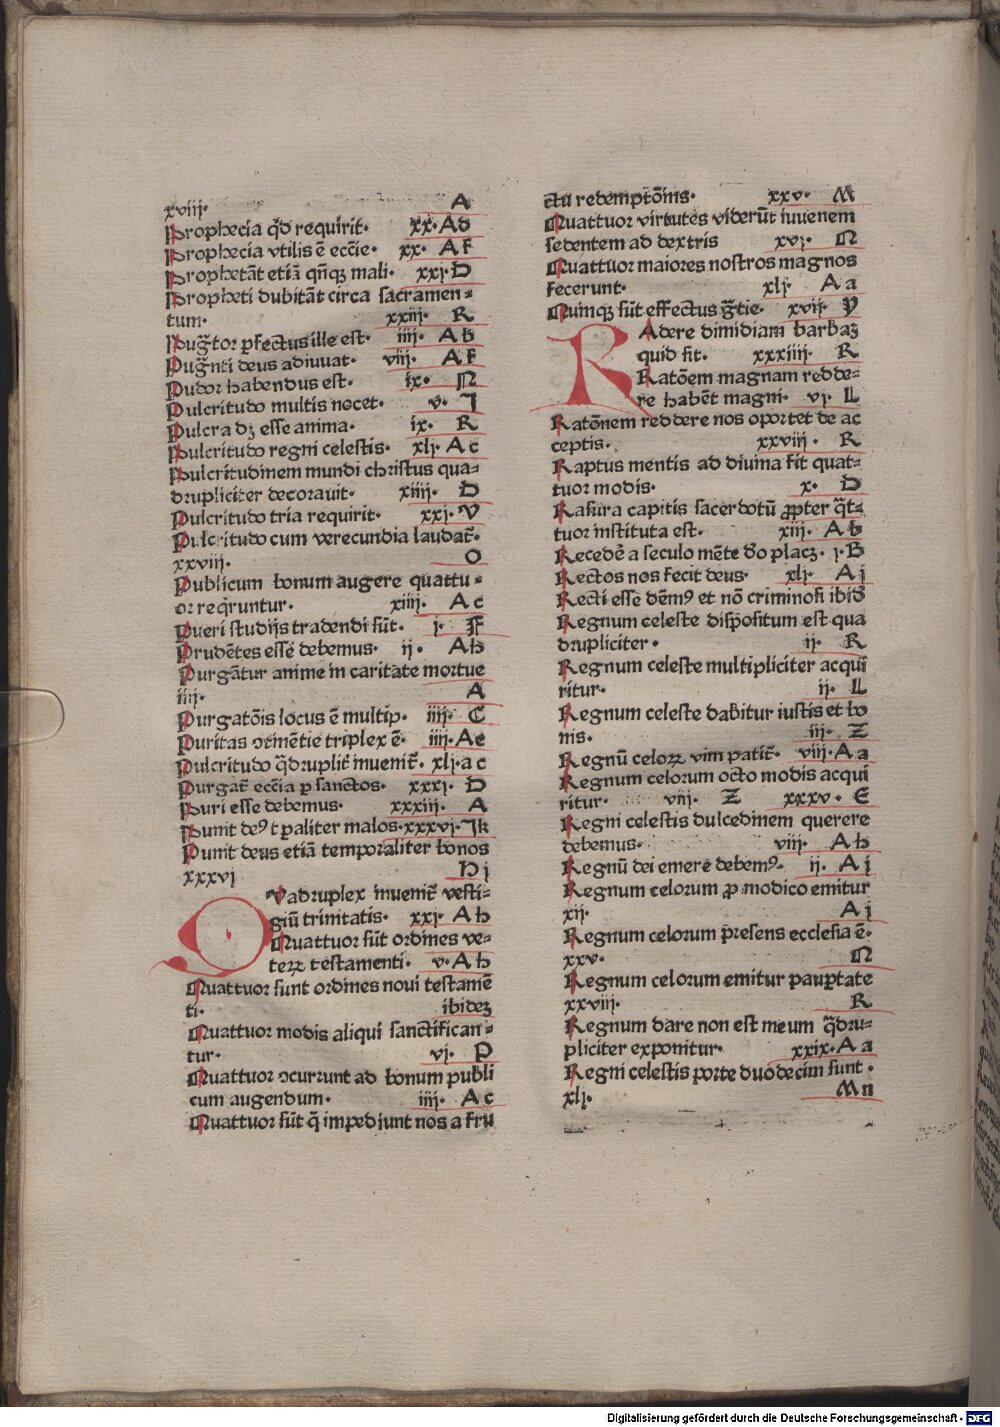 xviij. A
Prophecia qd̄ requirit. xx. Ad
Prophecia vtilis ē eccīe. xx. Af
Prophetāt etiā qn̄qꝫ mali. xxj. D
Propheti dubitāt circa sacramen-
tum. xxiij. R
Pug̃tor ꝑfectus ille est. iiij. Ab
Pug̃nti deus adiuuat. viij. Af
Pudor habendus est. ix. N
Pulcritudo multis nocet. v. J
Pulcra dꝫ esse anima. ix. R
Pulcritudo regni celestis. xlj. Ac
Pulcritudinem mundi christus qua-
drupliciter decorauit. xiiij. D
Pulcritudo tria requirit. xxj. V
Pulcritudo cum verecundia laudat̄.
xxviij. O
Publicum bonum augere quattu-
or reqͥruntur. xiiij. Ac
Pueri studijs tradendi sūt. j. F
Prudētes esse debemus. ij. Ab
Purgāt̄ur anime in caritate mortue
iiij. A
Purgatōis locus ē multip. iiij. C
Puritas ɔtinētie triplex ē. iiij. Ae
Pulcritudo q̄druplit̄ inuenit̄. xlj. ac
Purgat̄ eccīa ꝑ sanctos. xxxj. D
Puri esse debemus. xxxiij. A
Punit deꝰ tꝑaliter malos. xxxvj. Jk
Punit deus etiā temporaliter bonos
xxxvj Hj
QVadruplex inuenit̄ vesti-
giū trinitatis. xxj. Ah
Quattuor sūt ordines ve-
terꝝ testamenti. v. Ah
Quattuor sunt ordines noui testamē
ti. ibideꝫ
Quattuor modis aliqui sanctifican-
tur. vj. P
Quattuor ɔcurrunt ad bonum publi
cum augendum. iiij. Ac
Quattuor sūt q̄ impediunt nos a fru
ctu redemptōinis. xxv. M
Quattuor virtutes viderūt iuuenem
sedentem ad dextris xvj. N
Quattuor maiores nostros magnos
fecerunt. xlj. Aa
Quinqꝫ sūt effectus gr̄tie. xvij. Y
RAdere dimidiam barbaꝫ
quid sit. xxxiiij. R
Ratōem magnam redde-
re habēt magni. vj. L
Ratōnem reddere nos oportet de ac
ceptis. xxviij. R
Raptus mentis ad diuina fit quat-
tuor modis. x. D
Rasura capitis sacerdotū ꝓpter q̄t-
tuor instituta est. xiij. Ab
Recedē a seculo mēte dō placꝫ. j. B
Rectos nos fecit deus. xlj. Aj
Recti esse dēmꝰ et nō criminosi ibid̄
Regnum celeste dispositum est qua
drupliciter. ij. R
Regnum celeste multipliciter acqui
ritur. ij. L
Regnum celeste dabitur iustis et bo
nis. iij. Z
Regnū celoꝝ vim patit̄. viij. Aa
Regnum celorum octo modis acqui
ritur. viij. Z xxxv. E
Regni celestis dulcedinem querere
debemus. viij. Ah
Regnū dei emere debemꝰ. ij. Aj
Regnum celorum ꝓ modico emitur
xij. Aj
Regnum celorum p̄resens ecclesia ē.
xxv. N
Regnum celorum emitur pauꝑtate
xxviij. R
Regnum dare non est meum q̄dru-
pliciter exponitur. xxix. Aa
Regni celestis porte duodecim sunt.
xlj. Mn
Digitalisierung gefördert durch die Deutsche Forschungsgemeinschaft - DFG